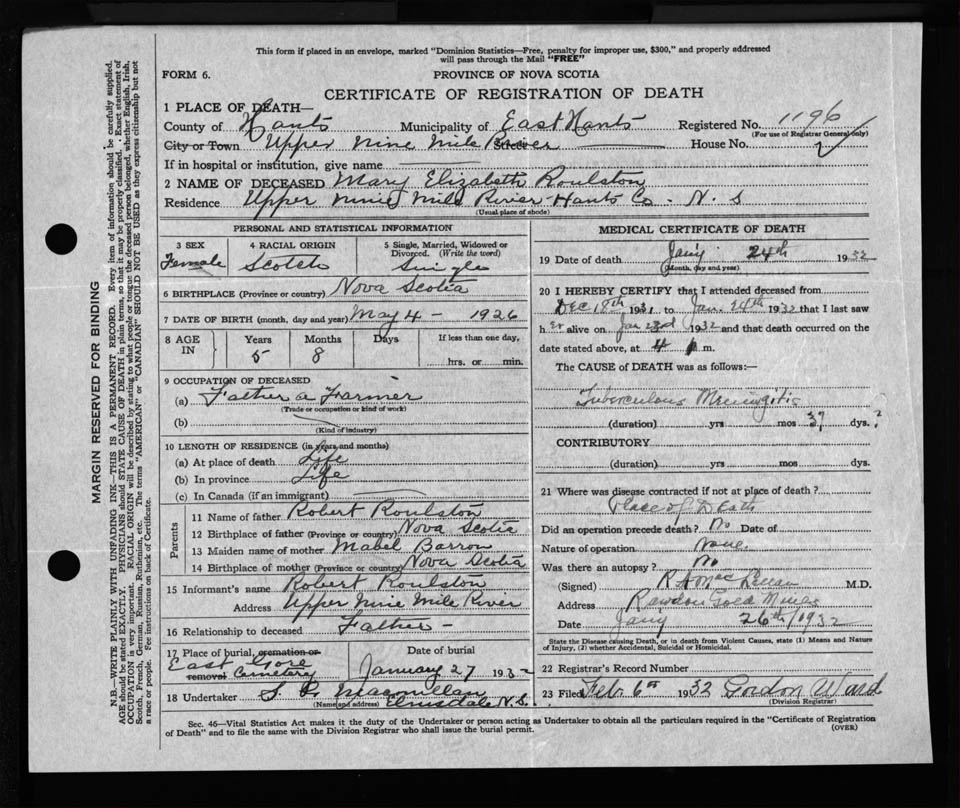 This form if placed in an envelope, marked "Dominion Statistics—Free, penalty for improper use, $300," and properly addressed
will pass through the Mail "FREE"
FORM 6.
PROVINCE OF NOVA SCOTIA
CERTIFICATE OF REGISTRATION OF DEATH
MARGIN RESERVED FOR BINDING
N.B.—WRITE PLAINLY WITH UNFADING INK—THIS IS A PERMANENT RECORD. Every item of information should be carefully supplied.
AGE should be stated EXACTLY. PHYSICIANS should STATE CAUSE OF DEATH in plain terms, so that it may be properly classified. Exact statement of
OCCUPATION is very important. RACIAL ORIGIN will be described by stating to what people or tongue the deceased person belonged, whether English, Irish,
Scotch, French, German, Russian, Ruthenian, etc. The terms "AMERICAN" or "CANADIAN" SHOULD NOT BE USED as they express citizenship but not
a race or people. Fee instructions on back of Certificate.
1 PLACE OF DEATH—
County of Hants Municipality of East Hants Registered No. 1196
(For use of Registrar General only)
City or Town Upper Nine Mile River Street House No.
If in hospital or institution, give name
2 NAME OF DECEASED Mary Elizabeth Roulston
Residence Upper Nine Mile River Hants Co. N. S
(Usual place of abode)
PERSONAL AND STATISTICAL INFORMATION
3 SEX Female
4 RACIAL ORIGIN Scotch
5 Single, Married, Widowed or Divorced. (Write the word) Single
6 BIRTHPLACE (Province or country) Nova Scotia
7 DATE OF BIRTH (month, day and year) May 4 - 1926
8 AGE IN Years Months Days If less than one day,
5 8 hrs. or min.
9 OCCUPATION OF DECEASED
(a) Father a Farmer
(Trade or occupation or kind of work)
(b)
(Kind of industry)
10 LENGTH OF RESIDENCE (in years and months)
(a) At place of death Life
(b) In province Life
(c) In Canada (if an immigrant)
Parents
11 Name of father Robert Roulston
12 Birthplace of father (Province or country) Nova Scotia
13 Maiden name of mother Mabel Barron
14 Birthplace of mother (Province or country) Nova Scotia
15 Informant's name Robert Roulston
Address Upper Nine Mile River
16 Relationship to deceased Father -
17 Place of burial, cremation or removal East Gore Cemetery
Date of burial January 27 1932
18 Undertaker S. P. Macmillan
(Name and address) Elmsdale N.S.
MEDICAL CERTIFICATE OF DEATH
19 Date of death Jany 24th 1932
(Month, day and year)
20 I HEREBY CERTIFY that I attended deceased from
Dec 18th 1931 to Jan. 24th 1932 that I last saw
her alive on Jan 23rd 1932 and that death occurred on the
date stated above, at 4 m.
The CAUSE of DEATH was as follows:—
Tuberculous Meningitis
(duration) yrs mos 37 dys. ?
CONTRIBUTORY
(duration) yrs mos dys.
21 Where was disease contracted if not at place of death ?
Place of Death
Did an operation precede death ? No Date of
Nature of operation None
Was there an autopsy ? No
(Signed) M.D.
Address Rawdon Gold Mines
Date Jany 26th/1932
State the Disease causing Death, or in death from Violent Causes, state (1) Means and Nature
of Injury, (2) whether Accidental, Suicidal or Homicidal.
22 Registrar's Record Number
23 Filed Feb. 6th 1932 Gordon Ward
(Division Registrar)
Sec. 46—Vital Statistics Act makes it the duty of the Undertaker or person acting as Undertaker to obtain all the particulars required in the "Certificate of Registration
of Death" and to file the same with the Division Registrar who shall issue the burial permit.
(OVER)